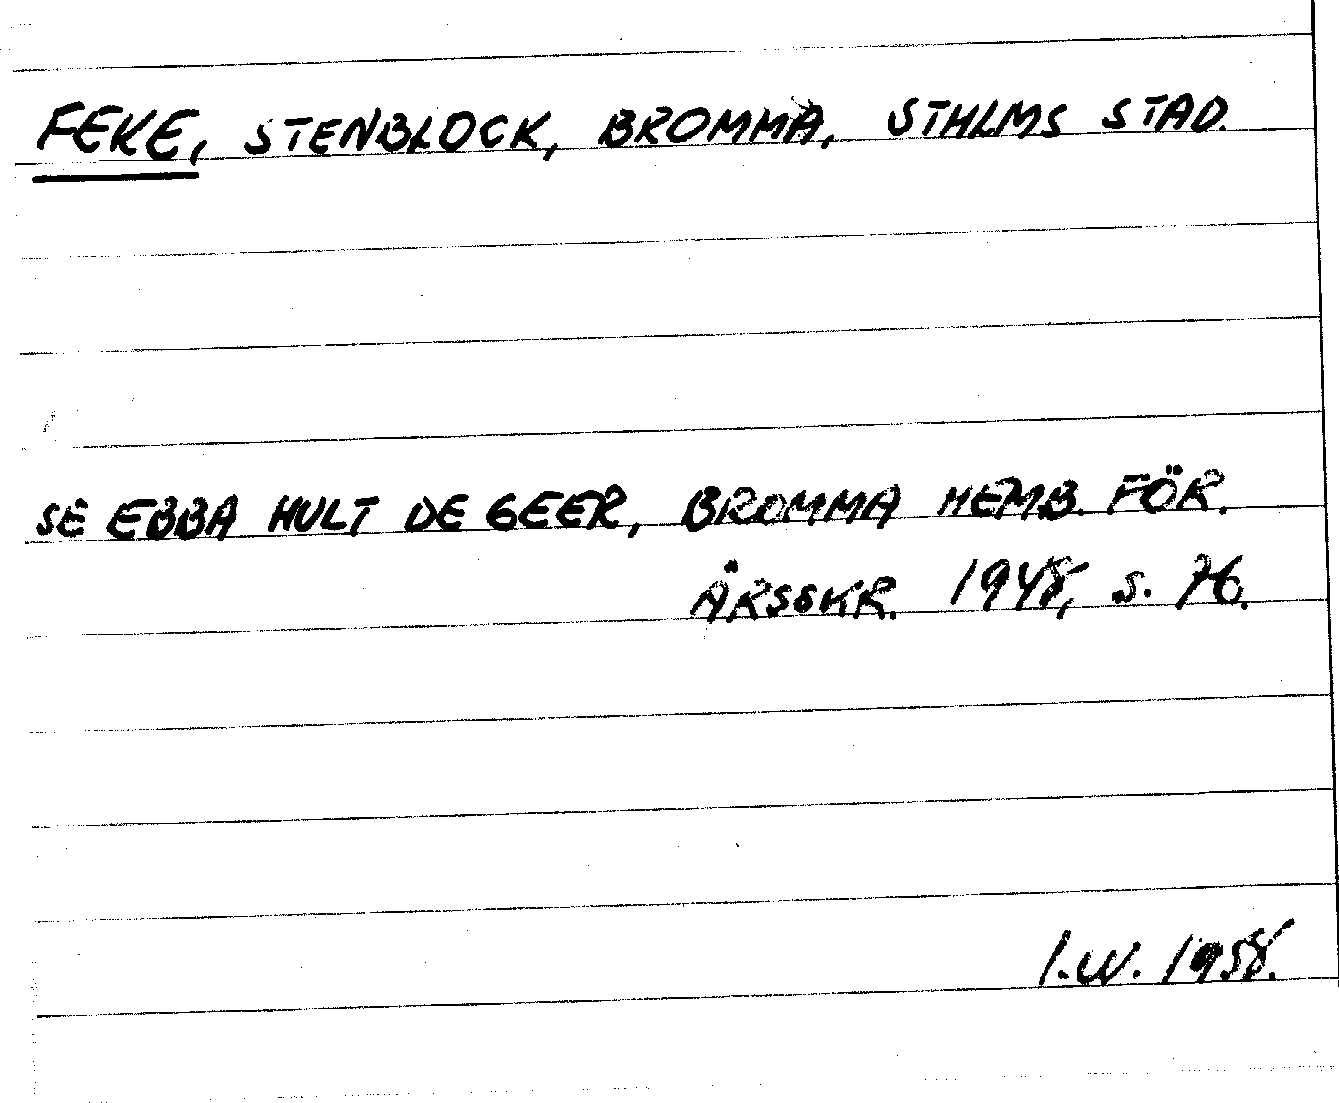 FEKE, STENBLOCK, BROMMA, STHLMS STAD.
SE EBBA HULT DE GEER, BROMMA HEMB. FÖR.
ÅRSSKR. 1948, S. 76.
I.W. 1958.